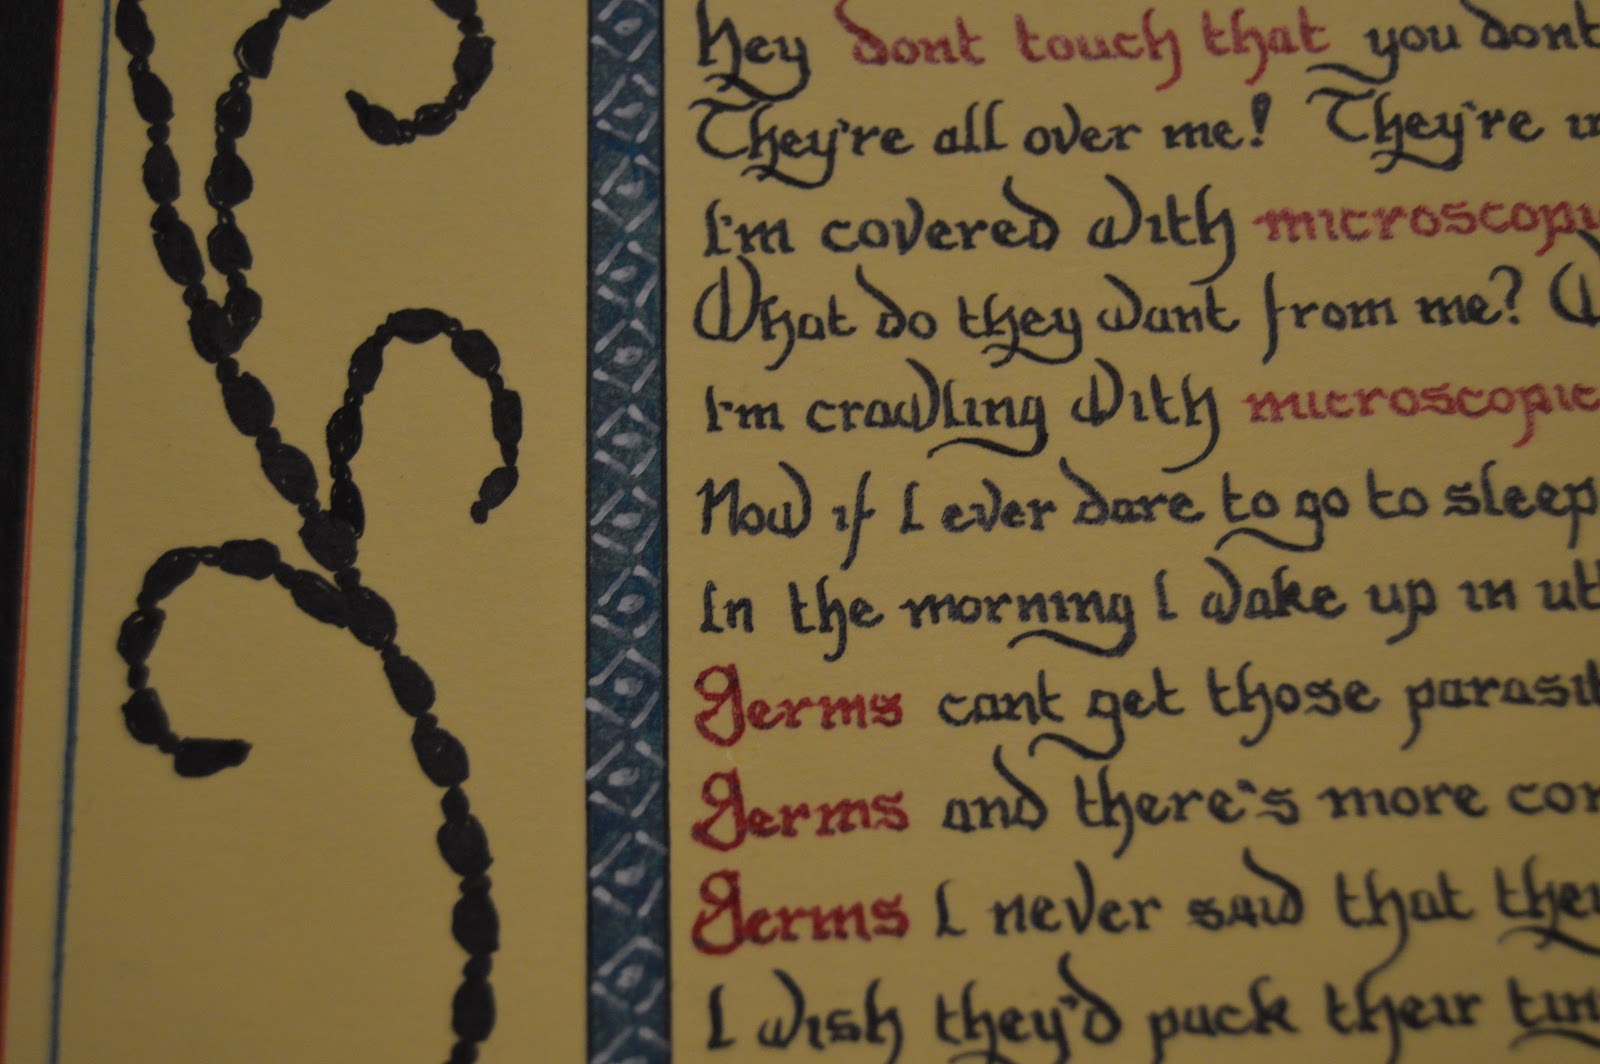 Hey dont touch that you dont
They're all over me! They're in
I'm covered with microscopic
What do they want from me?
I'm crawling with microscopic
Now if I ever dare to go to sleep
In the morning I wake up in utt
Germs cant get those parasit
Germs and there's more com
Germs I never said that they
I wish they'd pack their tin